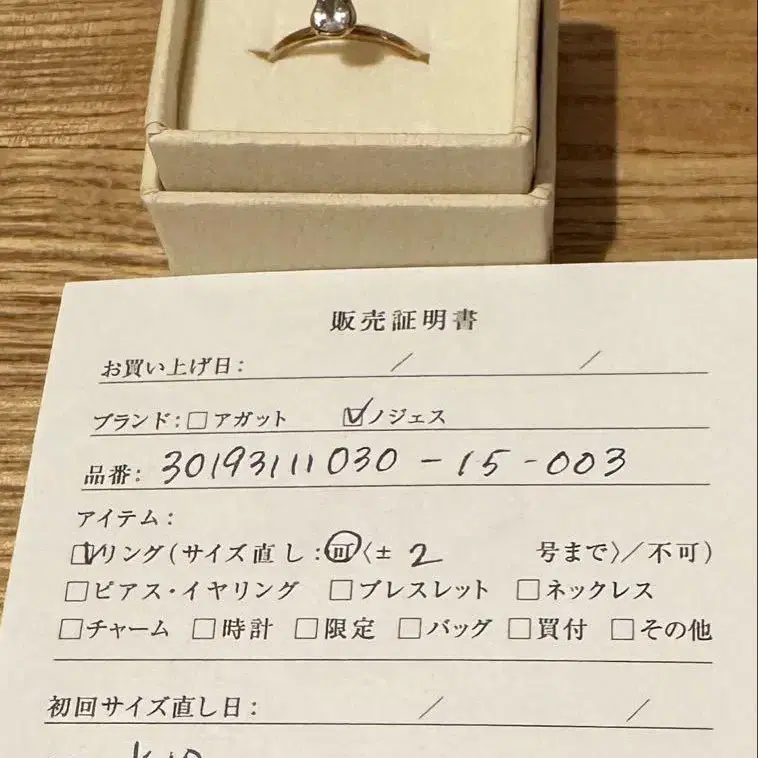 販売証明書
お買い上げ日: / /
ブランド: □アガット ☑ノジェス
品番: 30193111030-15-003
アイテム:
☑リング(サイズ直し:可〈± 2 号まで〉/不可)
□ピアス・イヤリング □ブレスレット □ネックレス
□チャーム □時計 □限定 □バッグ □買付 □その他
初回サイズ直し日: / /